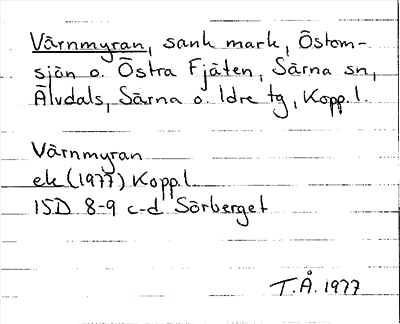 Värnmyran, sank mark, Östom-
sjön o. Östra Fjäten, Särna sn,
Älvdals, Särna o. Idre tg, Kopp.l.
Värnmyran
ek (1977) Kopp.l.
15D 8-9 c-d Sörberget
T.Å. 1977